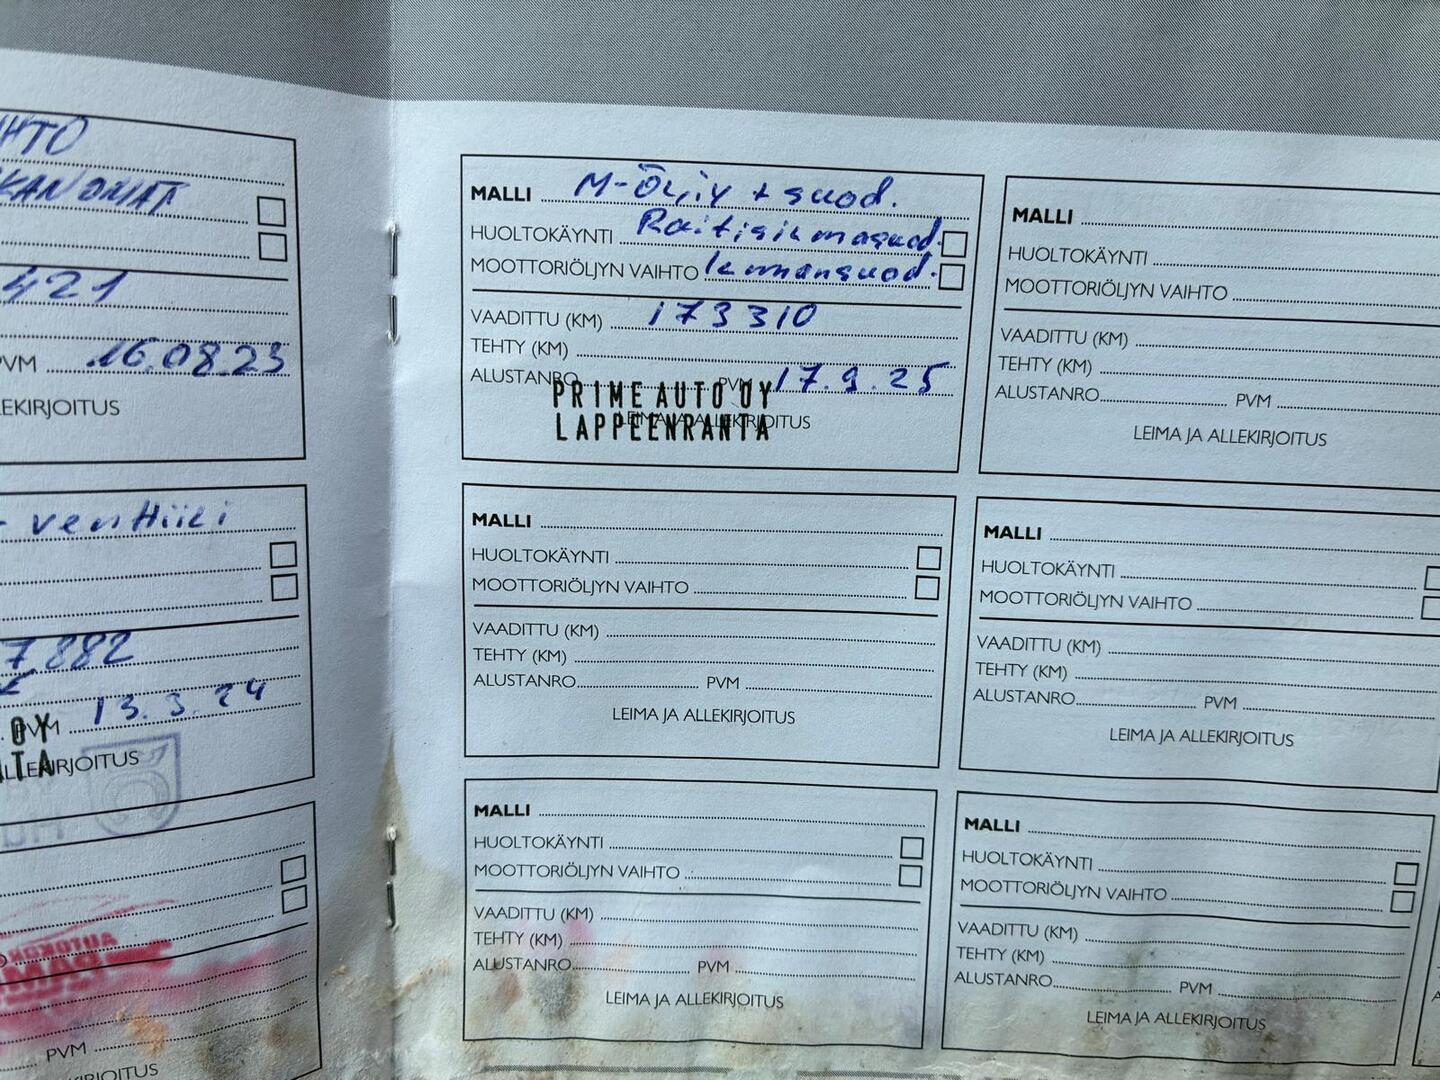 HTO
KANONAT
421
PVM 16.08.23
LEKIRJOITUS
- venttiili
7882
OY PVM 13.3.24
TA LLEKIRJOITUS
PVM
KIRJOITUS
MALLI M-Öljy + suod.
HUOLTOKÄYNTI Raitisilmasuod.
MOOTTORIÖLJYN VAIHTO ilmansuod.
VAADITTU (KM) 173310
TEHTY (KM)
ALUSTANRO PVM 17.9.25
PRIME AUTO OY
LEIMA JA ALLEKIRJOITUS
LAPPEENRANTA
MALLI
HUOLTOKÄYNTI
MOOTTORIÖLJYN VAIHTO
VAADITTU (KM)
TEHTY (KM)
ALUSTANRO PVM
LEIMA JA ALLEKIRJOITUS
MALLI
HUOLTOKÄYNTI
MOOTTORIÖLJYN VAIHTO
VAADITTU (KM)
TEHTY (KM)
ALUSTANRO PVM
LEIMA JA ALLEKIRJOITUS
MALLI
HUOLTOKÄYNTI
MOOTTORIÖLJYN VAIHTO
VAADITTU (KM)
TEHTY (KM)
ALUSTANRO PVM
LEIMA JA ALLEKIRJOITUS
MALLI
HUOLTOKÄYNTI
MOOTTORIÖLJYN VAIHTO
VAADITTU (KM)
TEHTY (KM)
ALUSTANRO PVM
LEIMA JA ALLEKIRJOITUS
MALLI
HUOLTOKÄYNTI
MOOTTORIÖLJYN VAIHTO
VAADITTU (KM)
TEHTY (KM)
ALUSTANRO PVM
LEIMA JA ALLEKIRJOITUS